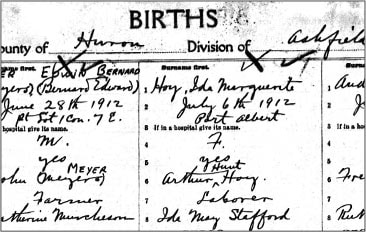 BIRTHS
ounty of Huron Division of Ashfield
Surname first. Surname first.
ER EDWIN BERNARD
yers) (Bernard Edward) 1 Hoy, Ida Marguerite 1
June 28th 1912 2 July 6th 1912 2
Pt Lot 1 Con. 7 E. Port Albert
hospital give its name. 3 If in a hospital give its name. 3 If in a h
M. 4 F. 4
yes 5 yes 5
MEYER Hunt
ohn (Meyers) 6 Arthur Hoy. 6 Fre
Farmer 7 Laborer 7
atherine Murcheson 8 Ida May Stafford 8 Rut